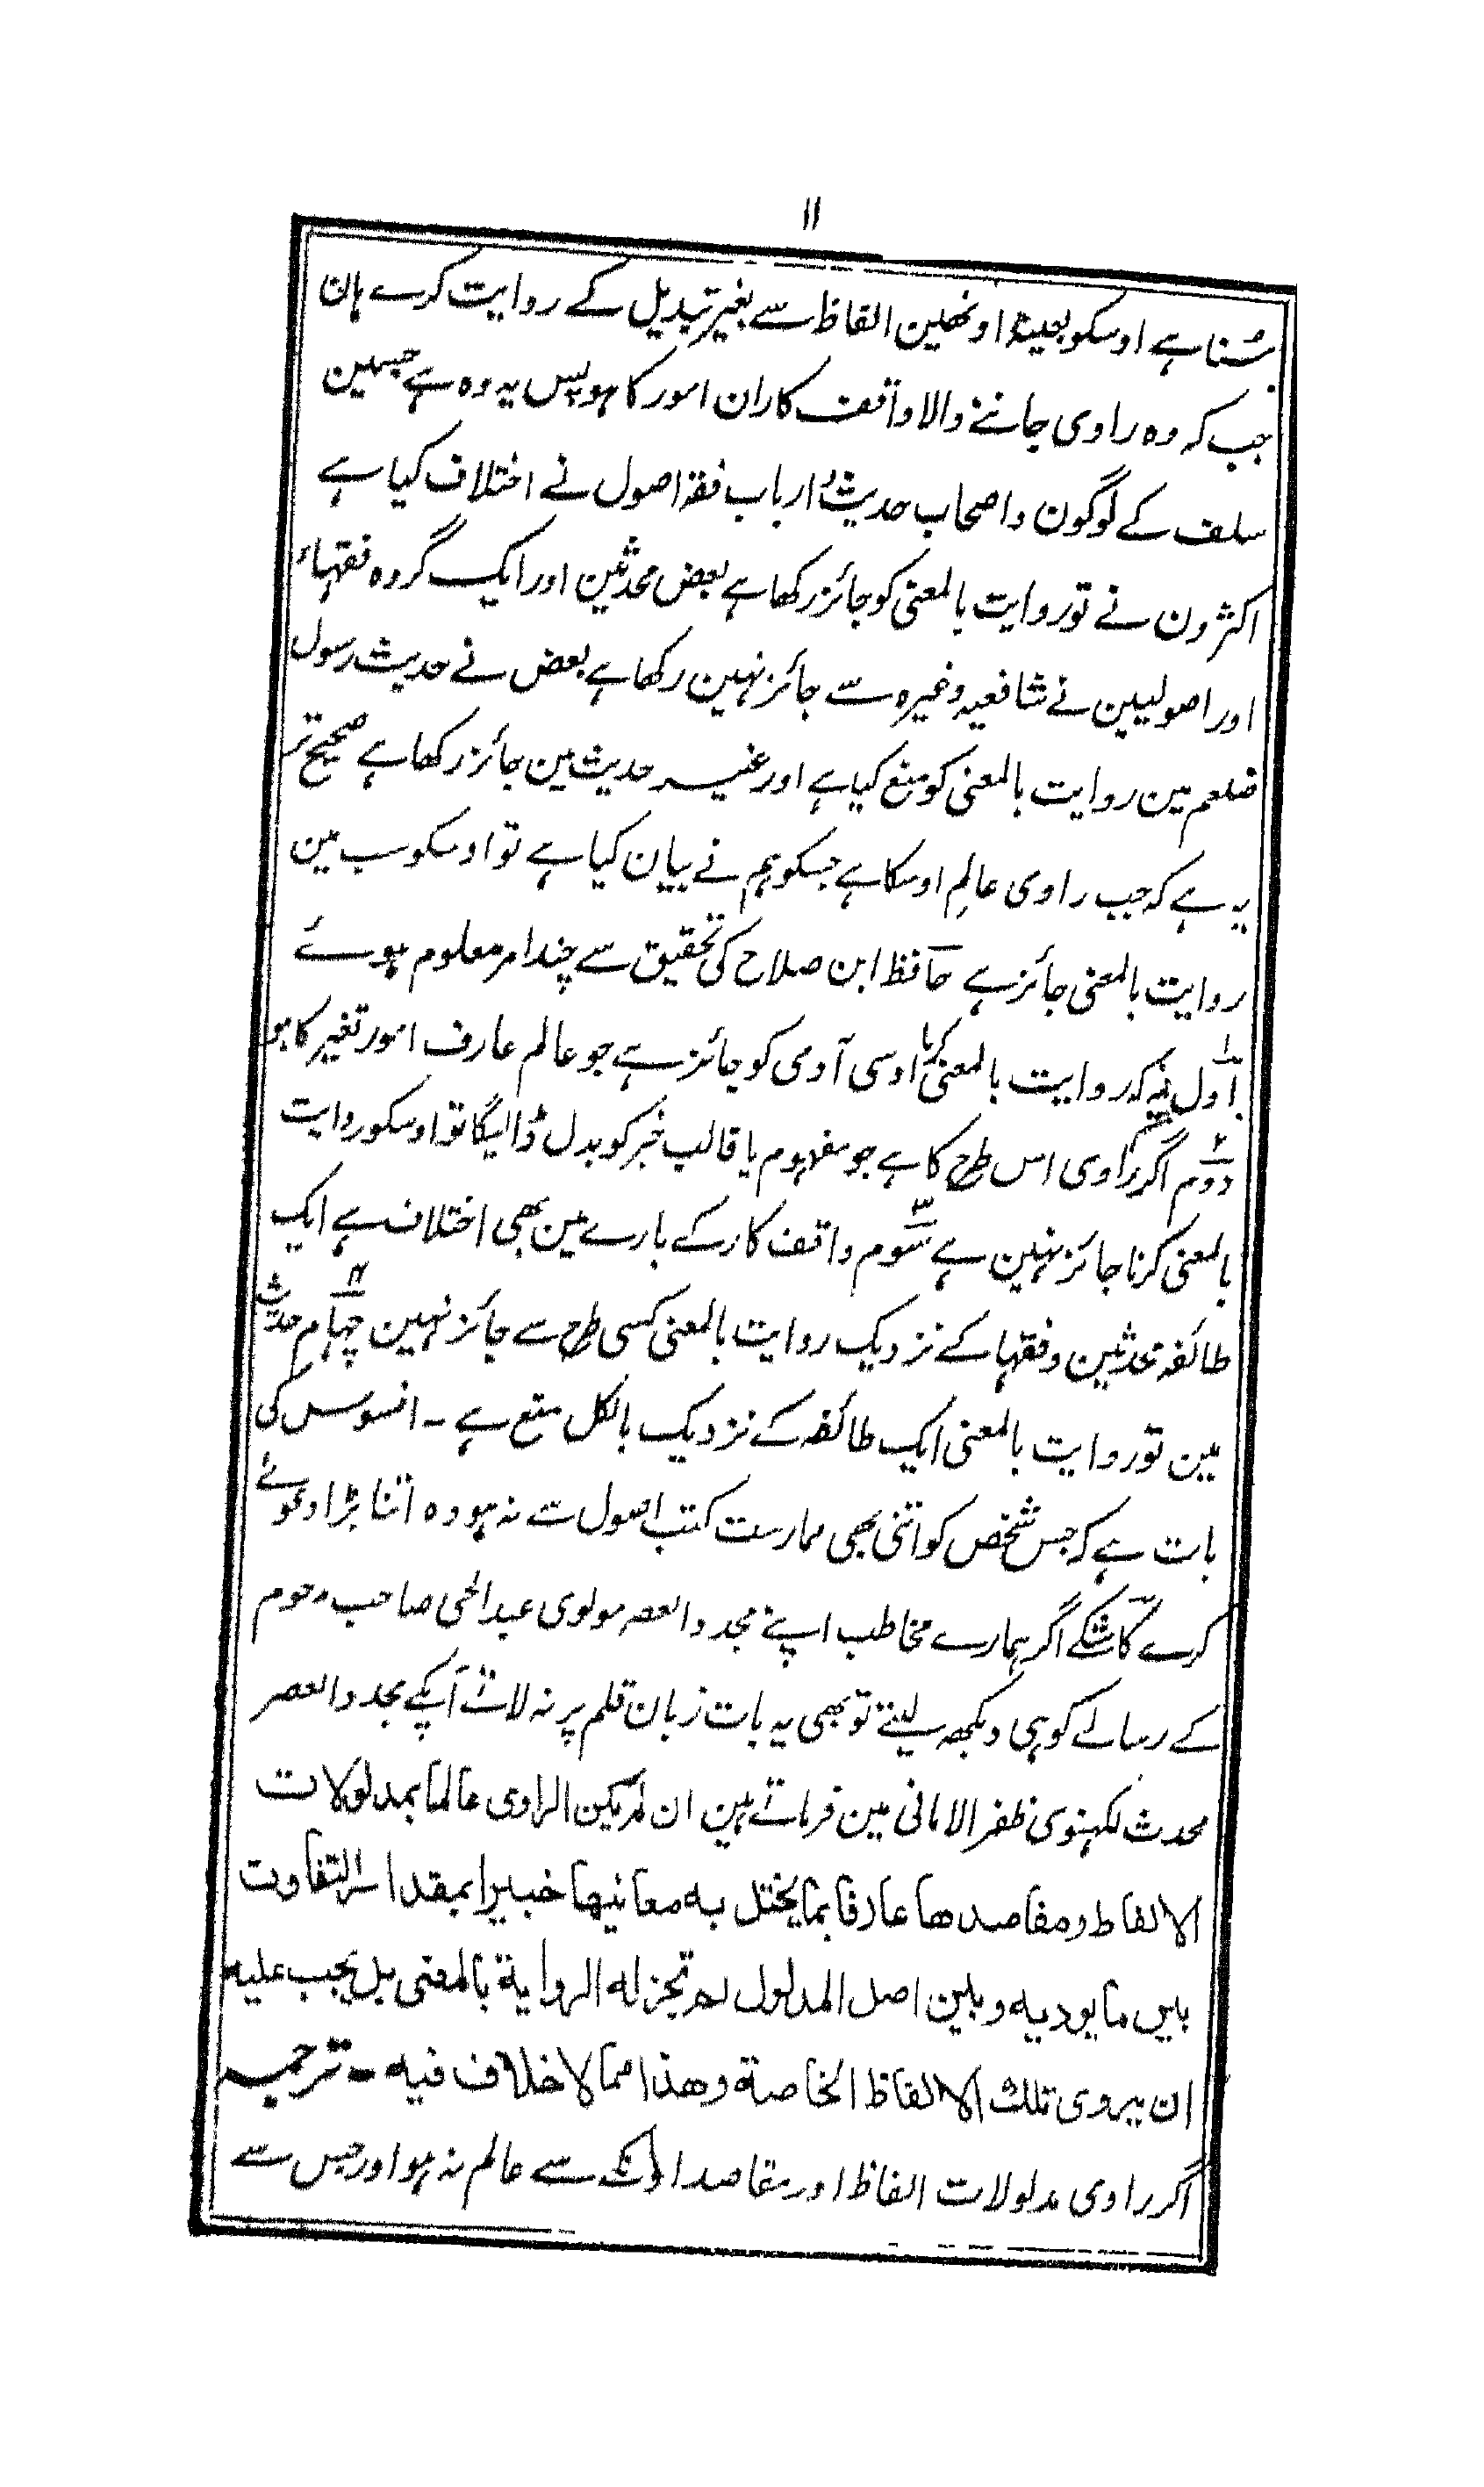 ۱۱
سُنا ہے اوسکو بعینہٖ اونھین الفاظ سے بغیر تبدیل کے روایت کرے ہان
جب کہ وہ راوی جاننے والا واقف کاران امور کا ہو پس یہ وہ ہے جسمین
سلف کے لوگون و اصحاب حدیث و ارباب فقہ اصول نے اختلاف کیا ہے
اکثرون نے تو روایت بالمعنی کو جائز رکھا ہے بعض محدثین اور ایک گروہ فقہاء
اور اصولیین نے شافعیہ وغیرہ سے جائز نہین رکھا ہے بعض نے حدیث رسول
صلعم مین روایت بالمعنی کو منع کیا ہے اور غیر حدیث مین جائز رکھا ہے صحیح تر
یہ ہے کہ جب راوی عالِم اوسکا ہے جسکو ہم نے بیان کیا ہے تو اوسکو سب مین
روایت بالمعنی جائز ہے حافظ ابن صلاح کی تحقیق سے چند امر معلوم ہوئے
اول یہ کہ روایت بالمعنی کرنا اوسی آدمی کو جائز ہے جو عالم عارف امور تغیر کا ہو
دوم اگر راوی اس طرح کا ہے جو مفہوم یا قالب خبر کو بدل ڈالیگا تو اوسکو روایت
بالمعنی کرنا جائز نہین ہے سوم واقف کار کے بارے مین بھی اختلاف ہے ایک
طائفہ محدثین و فقہا کے نزدیک روایت بالمعنی کسی طرح سے جائز نہین چہارم حدیث
مین تو روایت بالمعنی ایک طائفہ کے نزدیک بالکل منع ہے ۔ افسوس کی
بات ہے کہ جس شخص کو اتنی بھی ممارست کتب اصول سے نہ ہو وہ اتنا بڑا دعوے
کرے کاشکے اگر ہمارے مخاطب اپنے مجدد العصر مولوی عبد الحی صاحب مرحوم
کے رسالے کو ہی دیکھہ لیتے تو بھی یہ بات زبان قلم پر نہ لاتے آپکے مجدد العصر
محدث لکہنوی ظفر الامانی مین فرماتے ہین ان لم یکن الراوی عالما بمدلولات
الالفاظ و مقاصدها عارفا بما یختل به معانیها خبیرا بمقدار التفاوت
بین ما یودیه و بین اصل المدلول لم تجز له الروایة بالمعنی بل یجب علیه
ان یروی تلک الالفاظ الخاصة و هذا مما لا خلاف فیه ۔ ترجمہ
اگر راوی مدلولات الفاظ اور مقاصد اونکے سے عالم نہ ہو اور جس سے